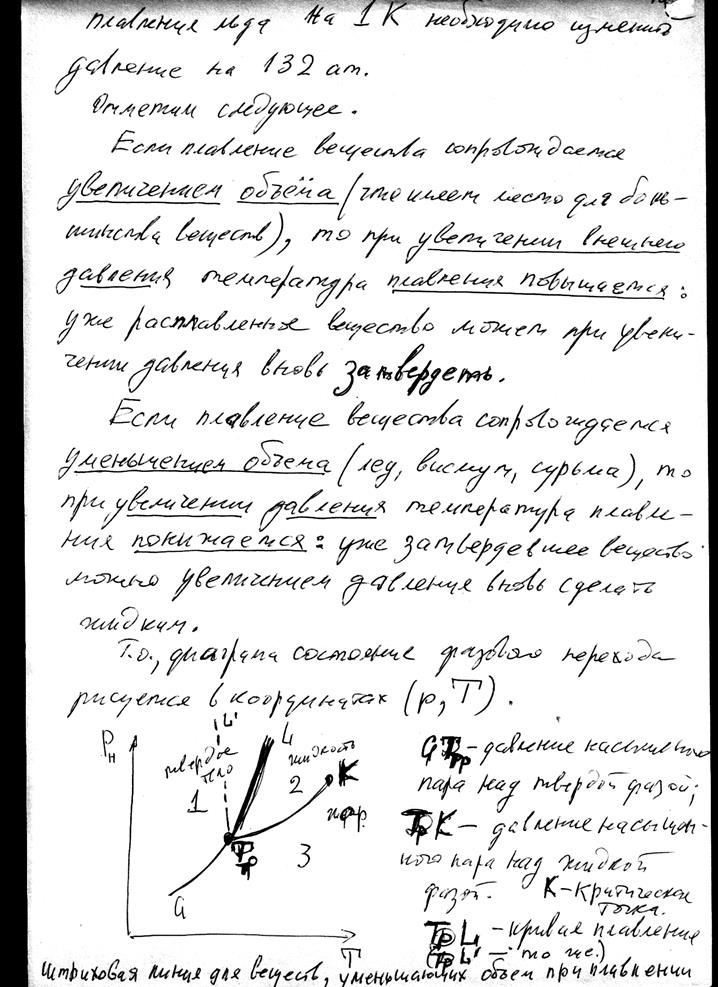 плавления льда на 1 К необходимо изменить
давление на 132 ат.
Отметим следующее.
Если плавление вещества сопровождается
увеличением объёма (что имеет место для боль-
шинства веществ), то при увеличении внешнего
давления температура плавления повышается:
уже расплавленное вещество может при увели-
чении давления вновь затвердеть.
Если плавление вещества сопровождается
уменьшением объема (лед, висмут, сурьма), то
при увеличении давления температура плавле-
ния понижается: уже затвердевшее вещество
можно увеличением давления вновь сделать
жидким.
Т.о., диаграма состояние фазового перехода
рисуется в координатах (p,T).
Pн
L'
L
твердое тело
1
жидкость
2
K
пар.
3
Тр
G
T
GТр - давление насыщенного
пара над твердой фазой;
ТрK - давление насыщен-
ного пара над жидкой
фазой. K - критическая
точка.
ТрL - кривая плавления
(ТрL' - то же.)
Штриховая линия для веществ, уменьшающих объем при плавлении